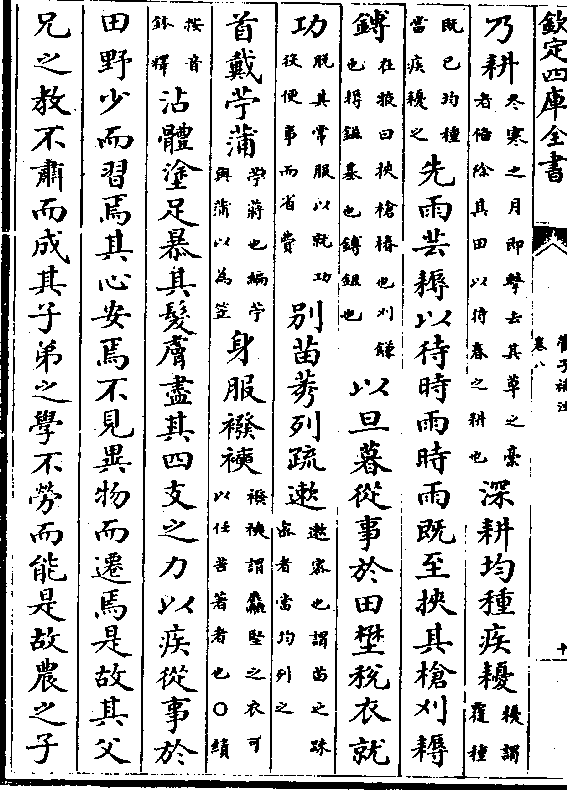 欽定四庫全書
管子補注
卷八
乃耕冬寒之月即擊去其草之稾者脩除其田以待春之耕也深耕均種疾耰耰謂覆種
既已均種當疾耰之先雨芸耨以待時雨時雨既至挾其槍刈耨
鎛在掖曰挾槍樁也刈鎌也耨鎡基也鎛鉏也以旦暮從事於田壄稅衣就
功脫其常服以就功從便事而省費別苗莠列疏遫遫宻也謂苗之踈宻者當均列之
首戴苧蒲苧蔣也編苧與蒲以為笠身服襏襫襏襫謂麤堅之衣可以任苦著者也○績
按音鉢釋沾體塗足暴其髮膚盡其四支之力以疾從事於
田野少而習焉其心安焉不見異物而遷焉是故其父
兄之教不肅而成其子弟之學不勞而能是故農之子